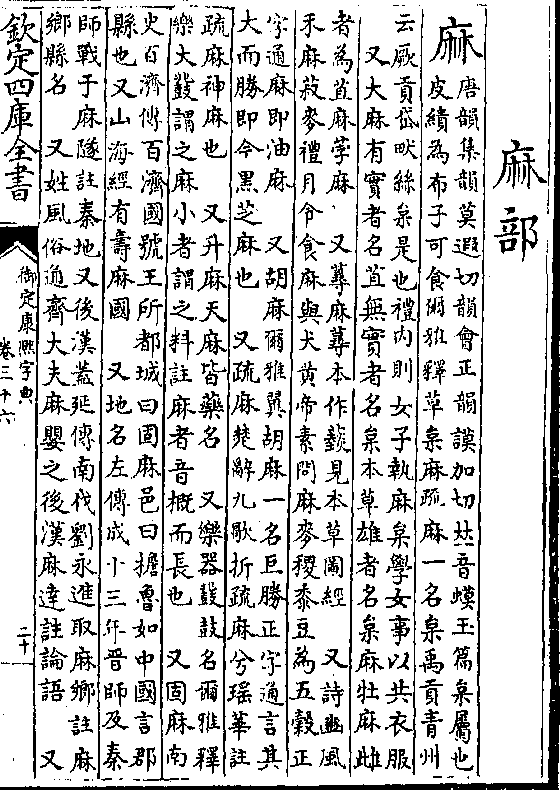 麻部
麻
唐韻集韻莫遐切韻會正韻謨加切𠀤音蟆玉篇枲屬也
皮績為布子可食爾雅釋草枲麻疏麻一名枲禹貢青州
云厥貢岱畎絲枲是也禮內則女子執麻枲學女事以共衣服
又大麻有實者名苴無實者名枲本草雄者名枲麻牡麻雌
者為苴麻荸麻 又蕁麻蕁本作䕭見本草圖經 又詩豳風
禾麻菽麥禮月令食麻與犬黃帝素問麻麥稷黍豆為五穀正
字通麻即油麻 又胡麻爾雅翼胡麻一名巨勝正字通言其
大而勝即今黑芝麻也 又疏麻楚辭九歌折疏麻兮瑤華註
疏麻神麻也 又升麻天麻皆藥名 又樂器鼗鼓名爾雅釋
樂大鼗謂之麻小者謂之料註麻者音概而長也 又固麻南
史百濟傳百濟國號王所都城曰固麻邑曰擔魯如中國言郡
縣也又山海經有壽麻國 又地名左傳成十三年晉師及秦
師戰于麻隧註秦地又後漢蓋延傳南伐劉永進取麻鄉註麻
鄉縣名 又姓風俗通齊大夫麻嬰之後漢麻達註論語 又
欽定四庫全書
御定康熙字典
卷三十六
二十